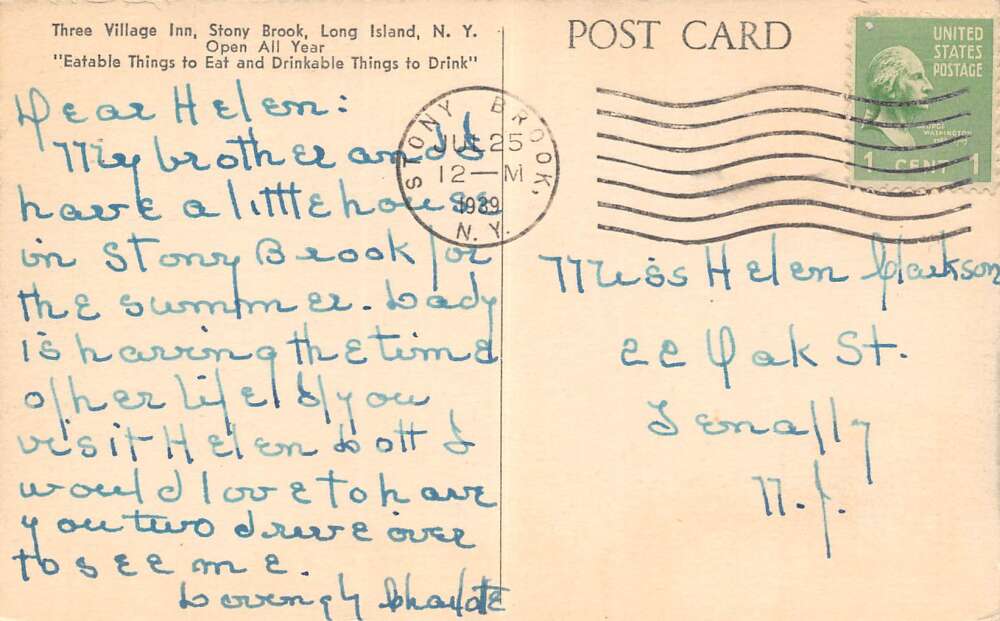 Three Village Inn, Stony Brook, Long Island, N. Y.
Open All Year
"Eatable Things to Eat and Drinkable Things to Drink"
POST CARD
UNITED
STATES
POSTAGE
GEORGE
WASHINGTON
1 CENT 1
STONY BROOK,
JUL 25
12—M
1939
N.Y.
Dear Helen:
My brother and I
have a little house
in Stony Brook for
the summer. Lady
is having the time
of her life! If you
visit Helen Lott I
would love to have
you two drive over
to see me.
Lovingly Charlotte
Miss Helen Clarkson
22 Oak St.
Tenafly
N.J.